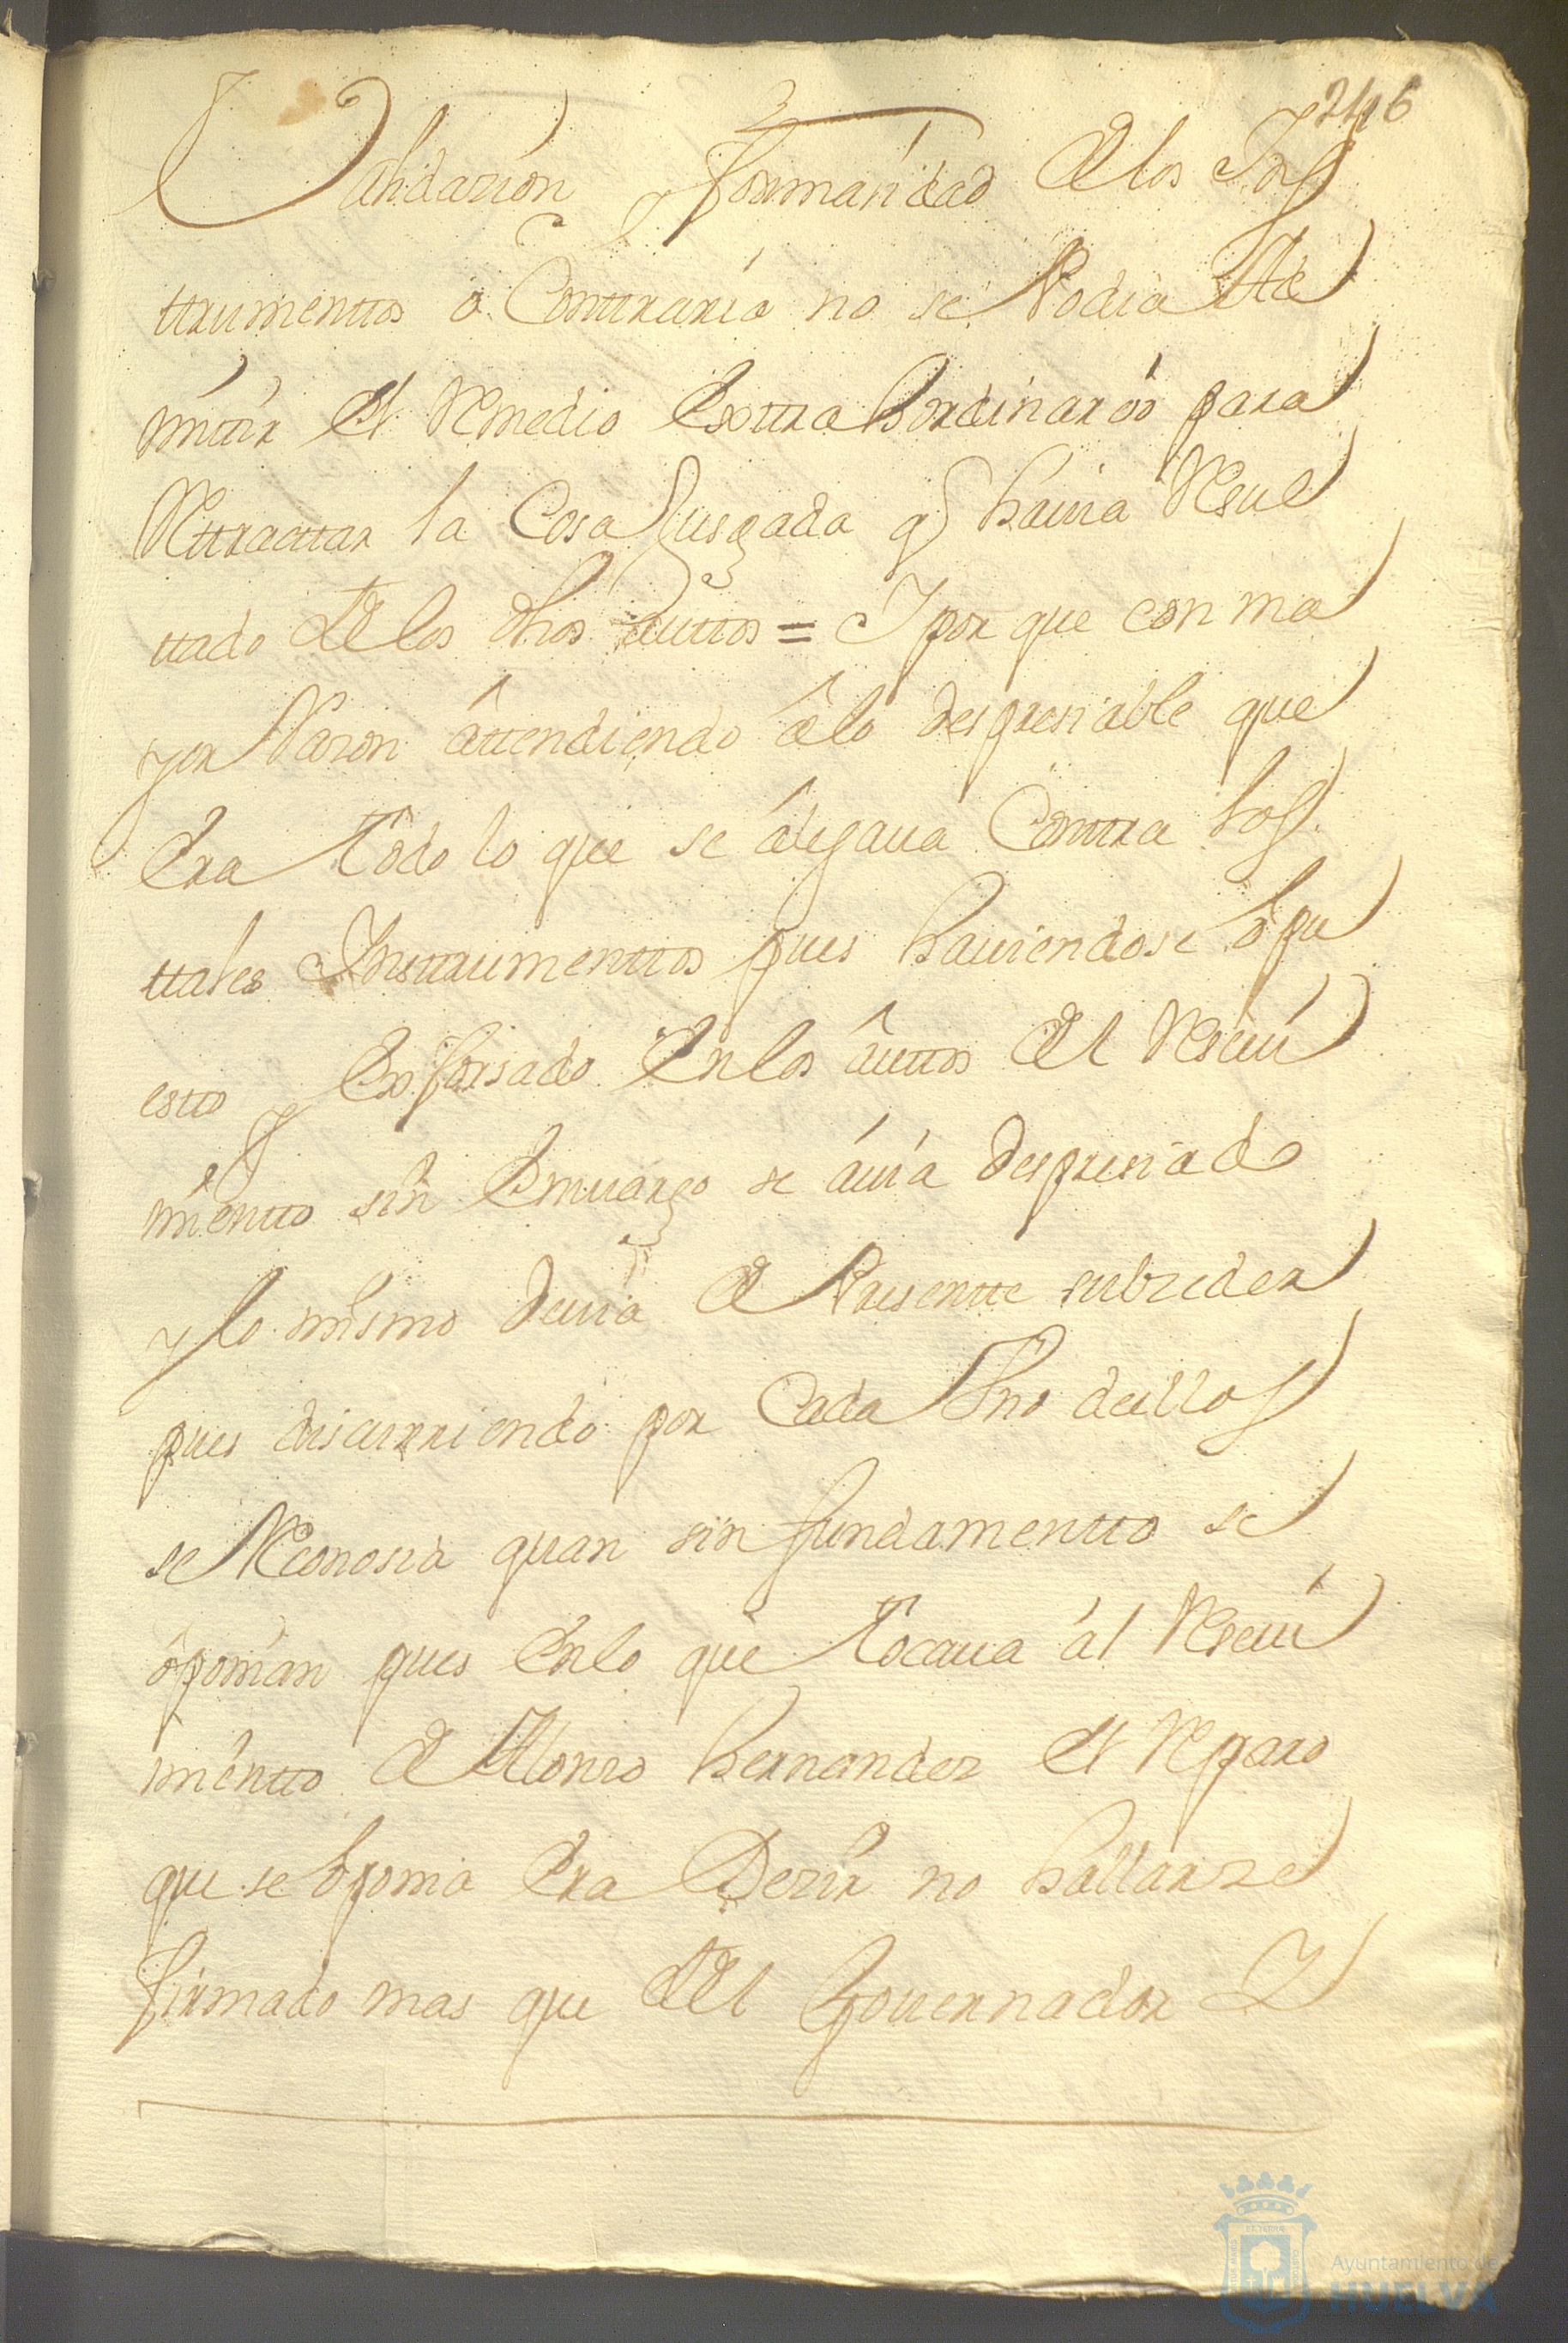 246
Validazion y formalidad de los Ins
ttrumenttos ô Contraria no se Podia Ad
mittir el Remedio Exttrahordinario para
Rettracttar la Cosa Jusgada q havia Resul
ttado de los dhos auttos = Y por que con ma
yor Razon âttendiendo âlo despresiable que
Era ttodo lo que se âlegava Conttra los
ttales Insttrumenttos pues haviendose ôpu
estto y Exforsado En los âuttos del Resevi
mientto sin Emvargo se âvia despresiado
y lo mismo devia de Presentte subzeder
pues discurriendo por Cada Vno de ellos
se Reconosia quan sin fundamentto se
ôponian pues En lo que ttocava âl Resevi
mientto de Alonso hernandez el Reparo
que se ôponia Era Dezir no hallarze
firmado mas que del Governador Y
Ayuntamiento de
HUELVA